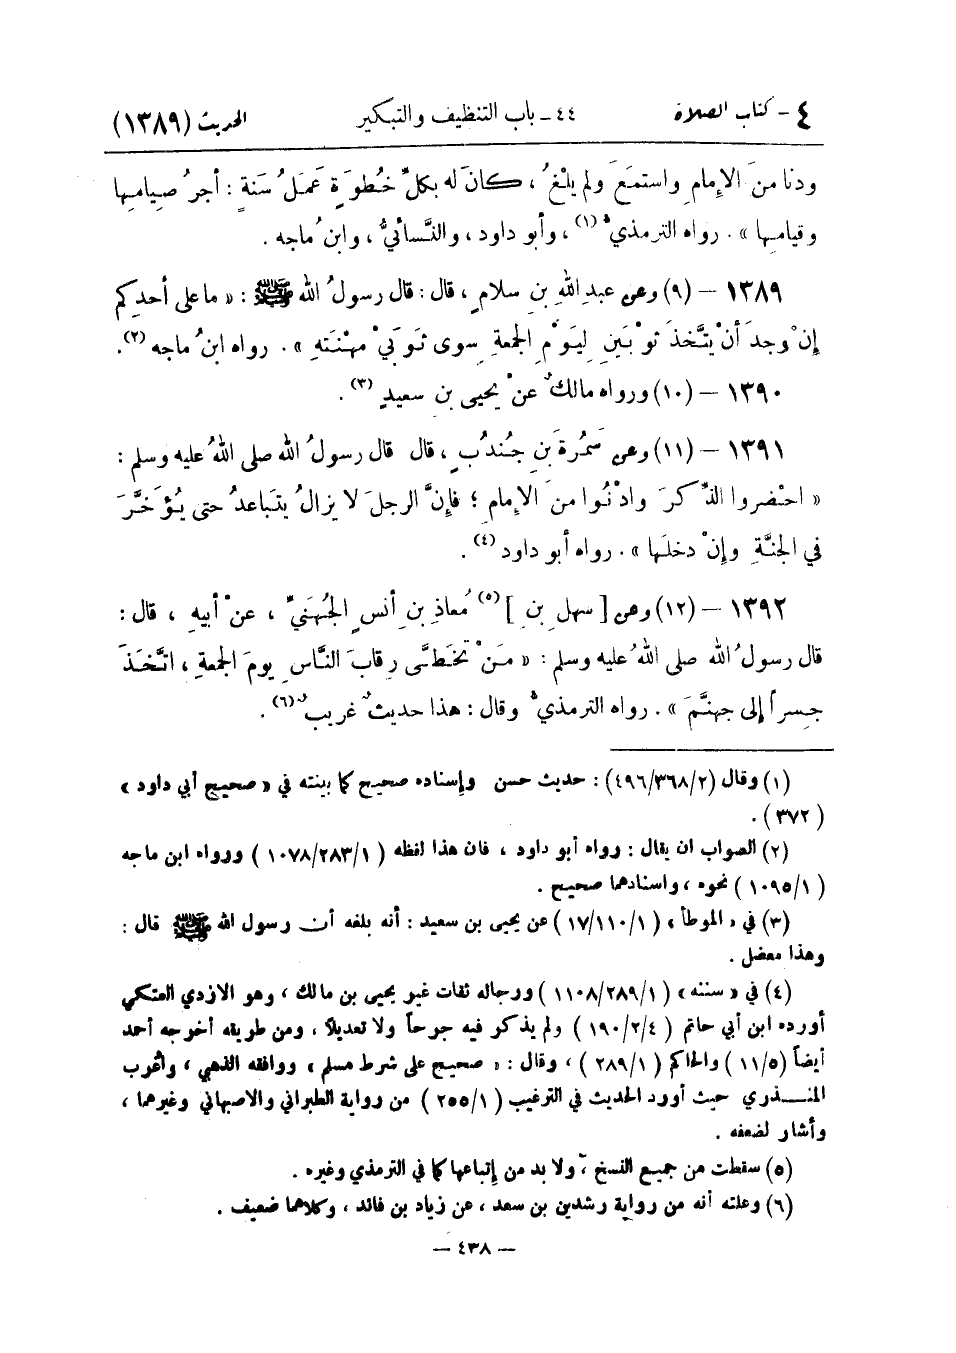 ٤ - كتاب الصلاة ٤٤ - باب التنظيف والتبكير الحديث (١٣٨٩)
ودنا منَ الإِمامِ واستمَعَ ولم يلْغُ ، كانَ له بكلِّ خُطوَةٍ عَمَلُ سَنةٍ : أجرُ صِيامِها
وقيامِها » . رواه الترمذيُّ (١) ، وأبو داود ، والنَّسائيُّ ، وابنُ ماجه .
١٣٨٩ - (٩) وعن عبدِ اللهِ بنِ سلامٍ ، قال : قال رسولُ اللهِ ﷺ : « ما على أحدِكم
إنْ وجدَ أنْ يتَّخذَ ثوْبَينِ لِيَوْمِ الجمعةِ سِوى ثَوبَيْ مهْنَتِهِ » . رواه ابنُ ماجه (٢) .
١٣٩٠ - (١٠) ورواه مالكٌ عنْ يحيى بنِ سعيدٍ (٣) .
١٣٩١ - (١١) وعن سَمُرةَ بنِ جُندُبٍ ، قال قال رسولُ اللهِ صلى اللهُ عليه وسلم :
« احْضروا الذِّكرَ وادْنُوا منَ الإِمامِ ؛ فإنَّ الرجلَ لا يزالُ يتَباعدُ حتى يُؤَخَّرَ
في الجنَّةِ وإنْ دخلَها » . رواه أبو داود (٤) .
١٣٩٢ - (١٢) وعن [ سهلِ بنِ ] (٥) مُعاذِ بنِ أنسٍ الجُهَنيِّ ، عنْ أبيهِ ، قال :
قال رسولُ اللهِ صلى اللهُ عليه وسلم : « مَنْ تخَطَّى رِقابَ النَّاسِ يومَ الجمعةِ ، اتَّخذَ
جِسراً إلى جهنَّمَ » . رواه الترمذيُّ وقال : هذا حديثٌ غريبٌ (٦) .
(١) وقال (٤٩٦/٣٦٨/٢) : حديث حسن وإسناده صحيح كما بينته في « صحيح أبي داود »
(٣٧٢) .
(٢) الصواب ان يقال : رواه أبو داود ، فان هذا لفظه (١٠٧٨/٢٨٣/١) ورواه ابن ماجه
(١٠٩٥/١) نحوه ، واسنادهما صحيح .
(٣) في « الموطأ » (١٧/١١٠/١) عن يحيى بن سعيد : أنه بلغه أن رسول الله ﷺ قال :
وهذا معضل .
(٤) في « سننه » (١١٠٨/٢٨٩/١) ورجاله ثقات غير يحيى بن مالك ، وهو الازدي العتكي
أورده ابن أبي حاتم (١٩٠/٢/٤) ولم يذكر فيه جرحاً ولا تعديلاً ، ومن طريقه أخرجه أحمد
أيضاً (١١/٥) والحاكم (٢٨٩/١) ، وقال : « صحيح على شرط مسلم » ووافقه الذهبي ، وأغرب
المنذري حيث أورد الحديث في الترغيب (٢٥٥/١) من رواية الطبراني والاصبهاني وغيرهما ،
وأشار لضعفه .
(٥) سقطت من جميع النسخ ، ولا بد من إتباعها كما في الترمذي وغيره .
(٦) وعلته أنه من رواية رشدين بن سعد ، عن زياد بن فائد ، وكلاهما ضعيف .
— ٤٣٨ —